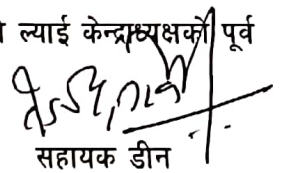 ल्याई केन्द्राध्यक्षको पूर्व
सहायक डीन